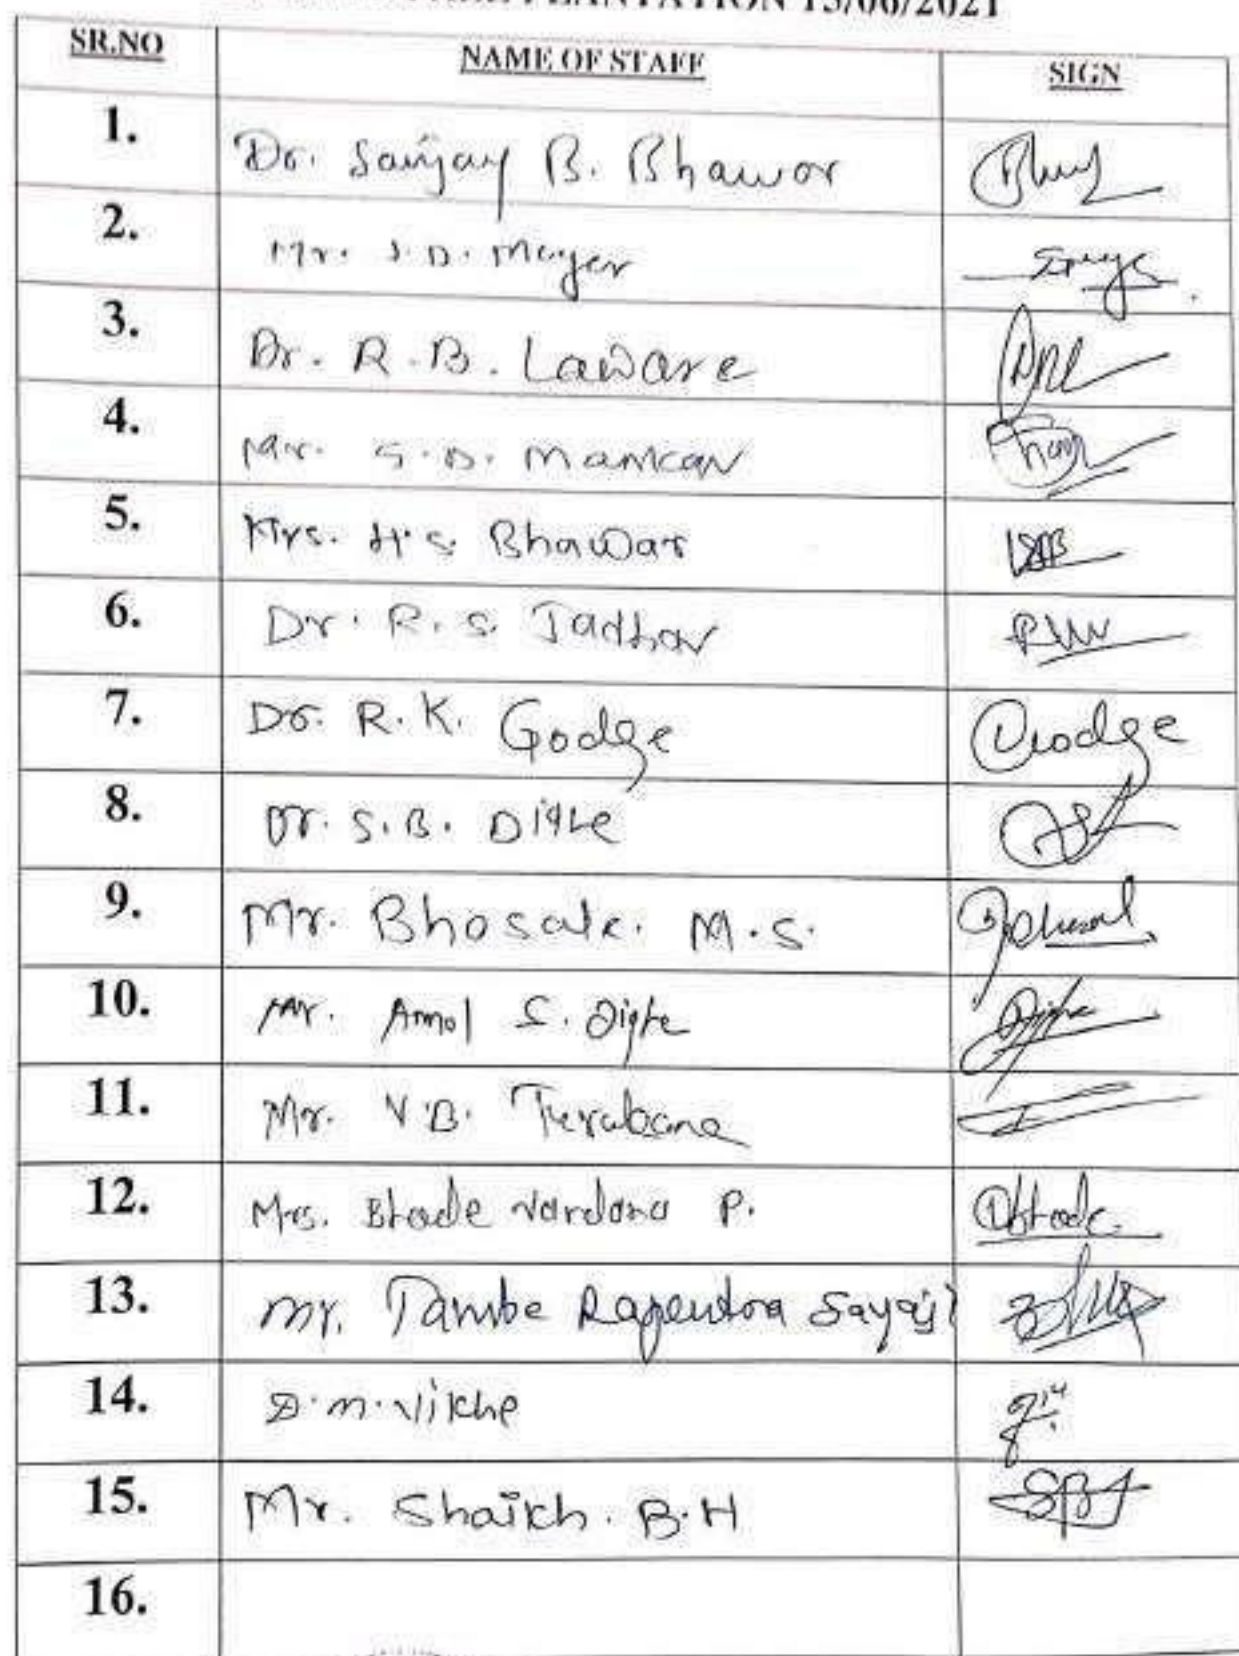 PLANTATION 15/06/2021
SR.NO NAME OF STAFF SIGN
1. Dr. Sanjay B. Bhawar
2. Mr. S.D. Mager
3. Dr. R.B. Laware
4. Mr. S.D. Mankar
5. Mrs. H.S. Bhawar
6. Dr. R.S. Jadhav
7. Dr. R.K. Godge Godge
8. Dr. S.B. Dighe
9. Mr. Bhosale. M.S.
10. Mr. Amol S. Dighe
11. Mr. V.B.
12. Mrs. Bhade Vandana P.
13. Mr. Tambe Rajendra Sayaji
14. D.M. Vikhe
15. Mr. Shaikh. B.H
16.